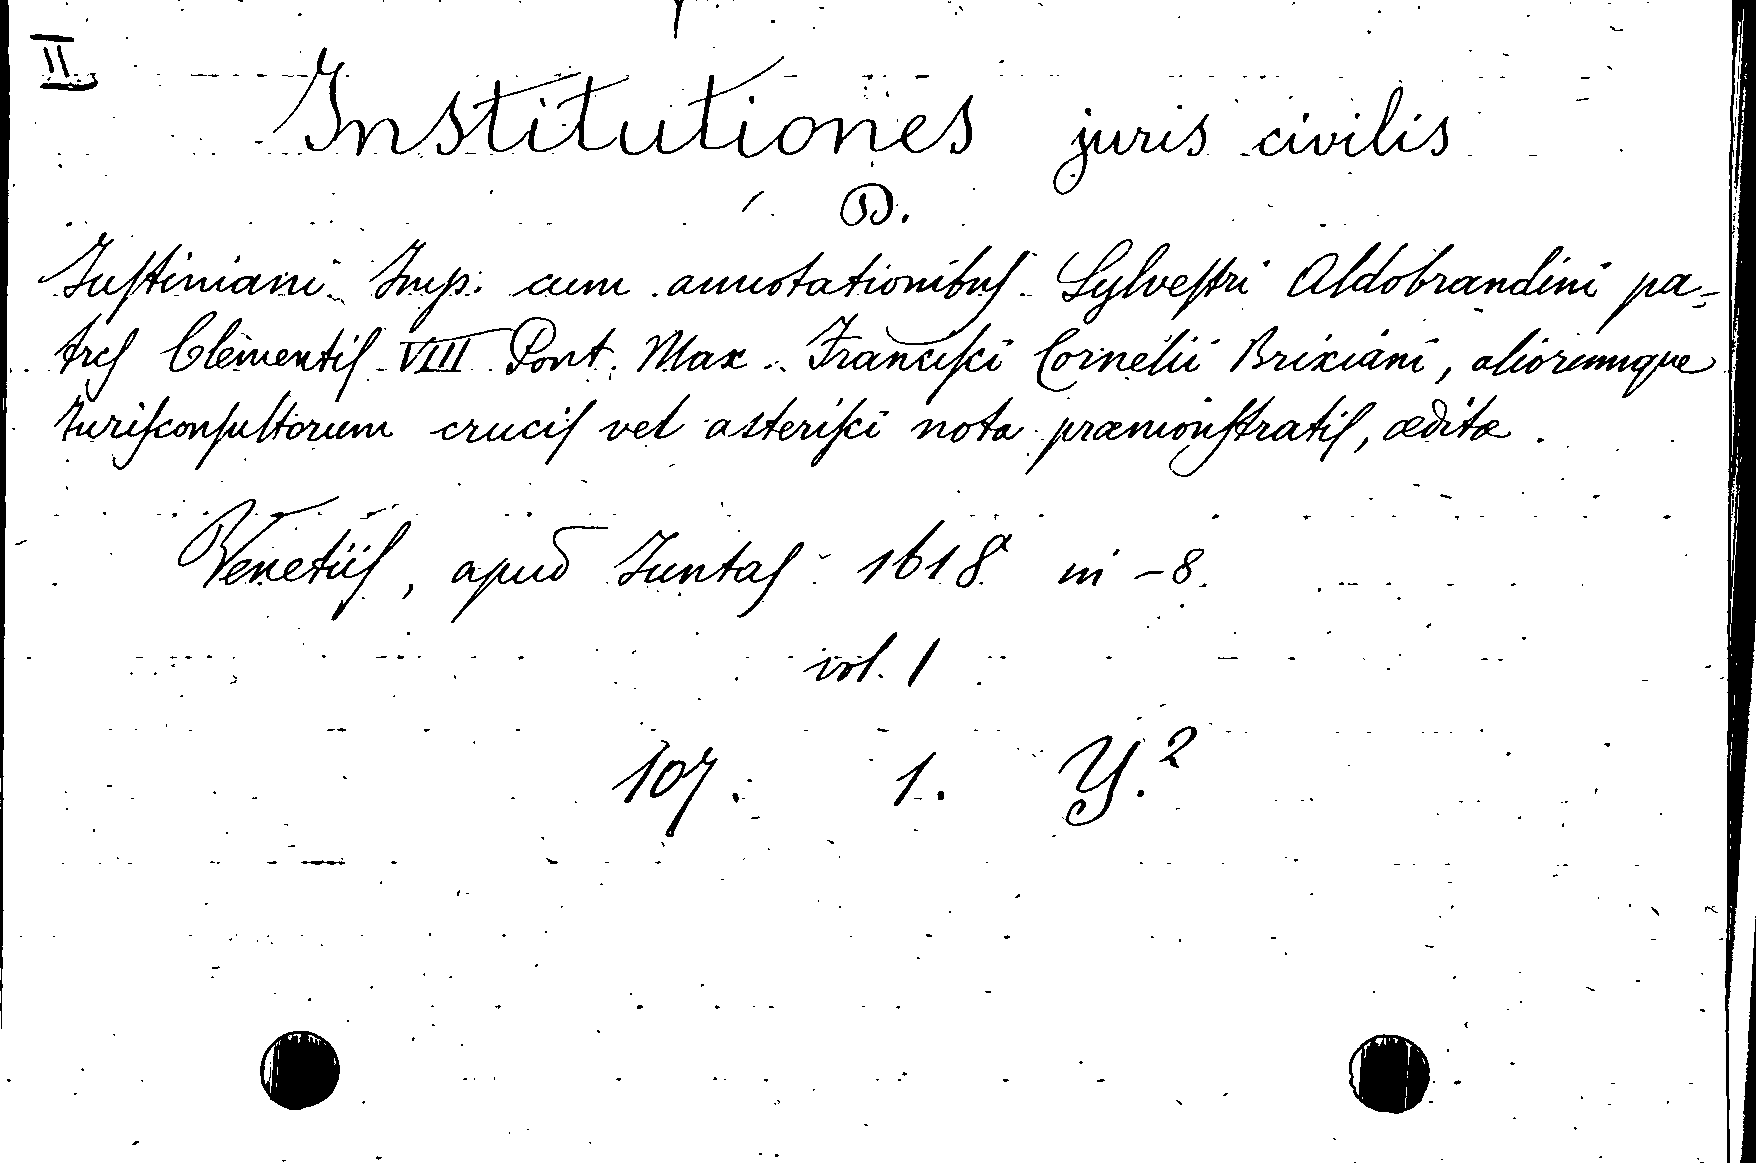 II
Institutiones juris civilis
D.
Justiniani Imp. cum annotationibus Sylvestri Aldobrandini pa-
tres Clementis VIII Pont. Max. Francisci Cornelii Brixiani, aliorumque
Jurisconsultorum crucis vel asterisci nota præmonstratis, ædita.
Venetiis, apud Juntas 1618 in -8.
vol. 1
107. 1. Y.2